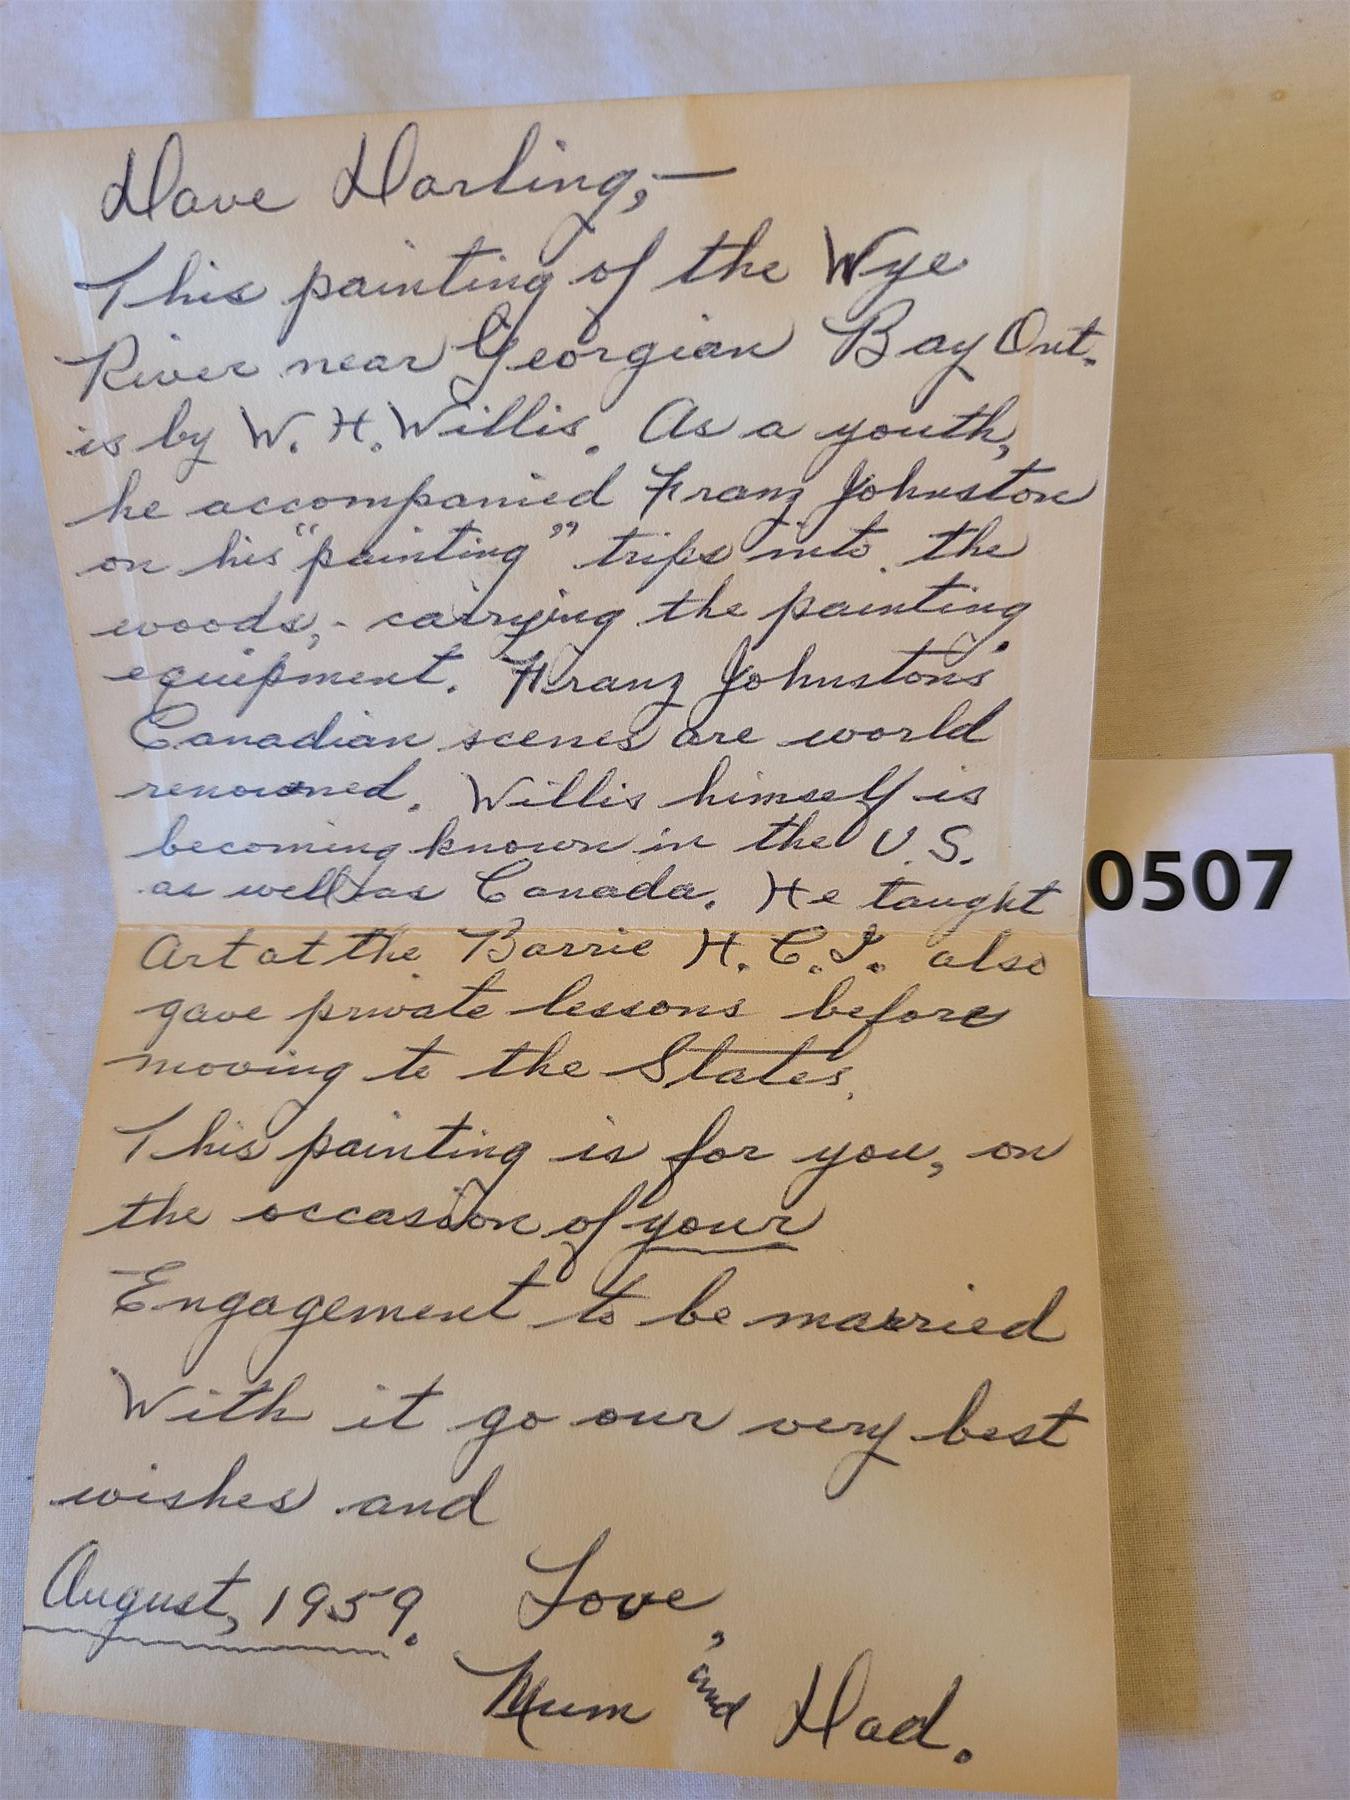 Dave Darling,—
This painting of the Wye
River near Georgian Bay Ont.
is by W. H. Willis. As a youth,
he accompanied Franz Johnston
on his "painting" trips into the
woods,- carrying the painting
equipment. Franz Johnston's
Canadian scenes are world
renowned. Willis himself is
becoming known in the U.S.
as well as Canada. He taught
Art at the Barrie H. C. I. also
gave private lessons before
moving to the States.
This painting is for you, on
the occasion of your
Engagement to be married
With it go our very best
wishes and
August, 1959. Love,
Mum and Dad.
0507